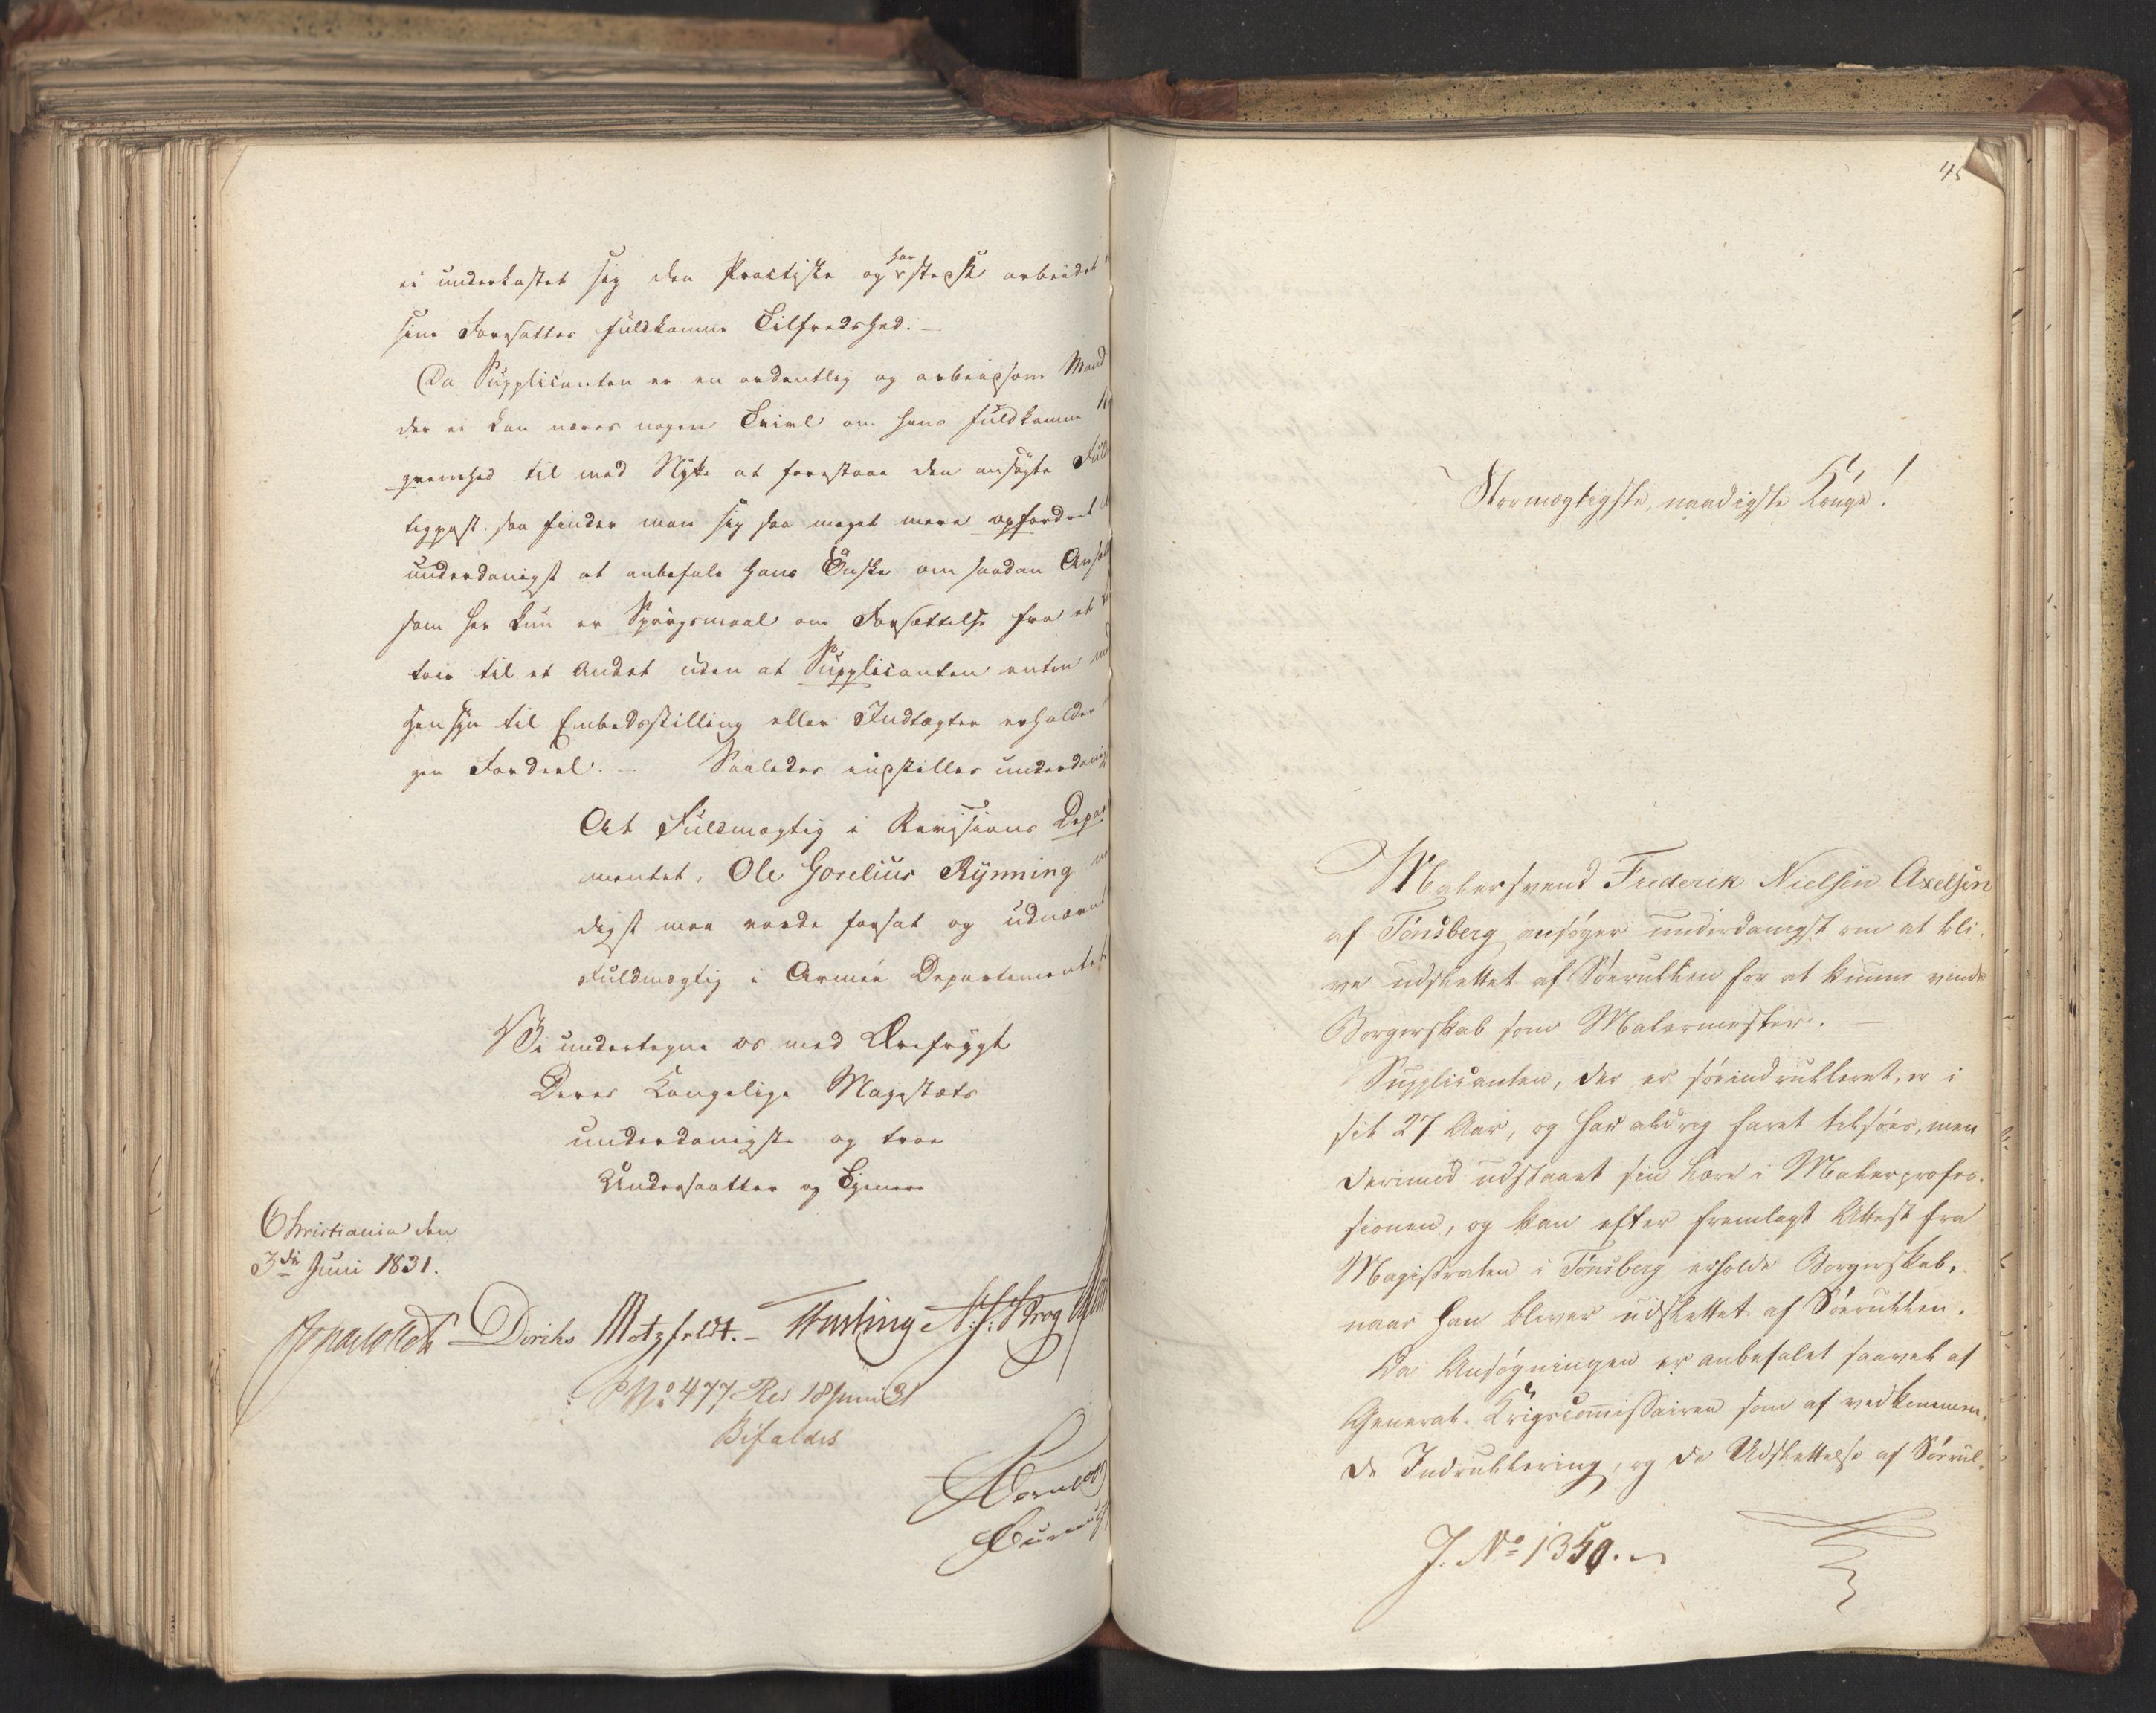 ei underkastet sig den Practiske og har stedse arbeidet
sine Foresattes fuldkomne Tilfredshed. —
Da Supplicanten er en ordentlig og arbeidsom Mand
der ei kan næres nogen Tvivl om hans fuldkomne
qvemhed til med Nytte at forestaae den ansøgte Fuld
tigpost, saa finder man sig saa meget mere opfordret
underdanigst at anbefale hans Ønske om saadan Ansæt
som her kun er Spørgsmaal om Forsættelse fra et
toir til et Andet uden at Supplicanten enten
Hensyn til Embedsstilling eller Indtægter erholder
gen Fordeel. — Saaledes indstilles underdanigst
At Fuldmægtig i Revisions Depar
mentet, Ole Gorelius Rynning
digst maa vorde forsat og udnævnt
Fuldmægtig i Armee Departementet
Vi undertegne os med Ærefrygt
Deres Kongelige Majestæts
underdanigste og troe
Undersaatter og Tjenere
Christiania den
3die Juni 1831.
Diriks Motzfeldt. — Fasting N. J. Krog
P No 477 Res 18 Juni 31
Bifaldes
45
Stormægtigste, naadigste Konge!
Malersvend Frederik Nielsen Axelsen
af Tønsberg ansøger underdanigst om at bli-
ve udslettet af Søerullen for at kunne vinde
Borgerskab som Malermester. —
Supplicanten, der er søeindrulleret, er i
sit 27 Aar, og har aldrig faret tilsøes, men
derimod udstaaet sin Lære i Malerprofes-
sionen, og kan efter fremlagt Attest fra
Magistraten i Tønsberg erholde Borgerskab,
naar han bliver udslettet af Søerullen.
Da Ansøgningen er anbefalet saavel af
General-Krigscommissairen som af vedkommen-
de Indrullering, og da Udslettelse af Søerul-
J. No 1350.